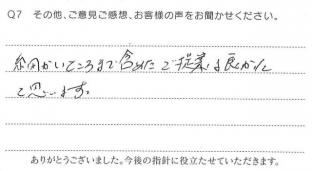 Q7 その他、ご意見ご感想、お客様の声をお聞かせください。
細かいところまで含めたご提案は良かった
と思います。
ありがとうございました。今後の指針に役立たせていただきます。